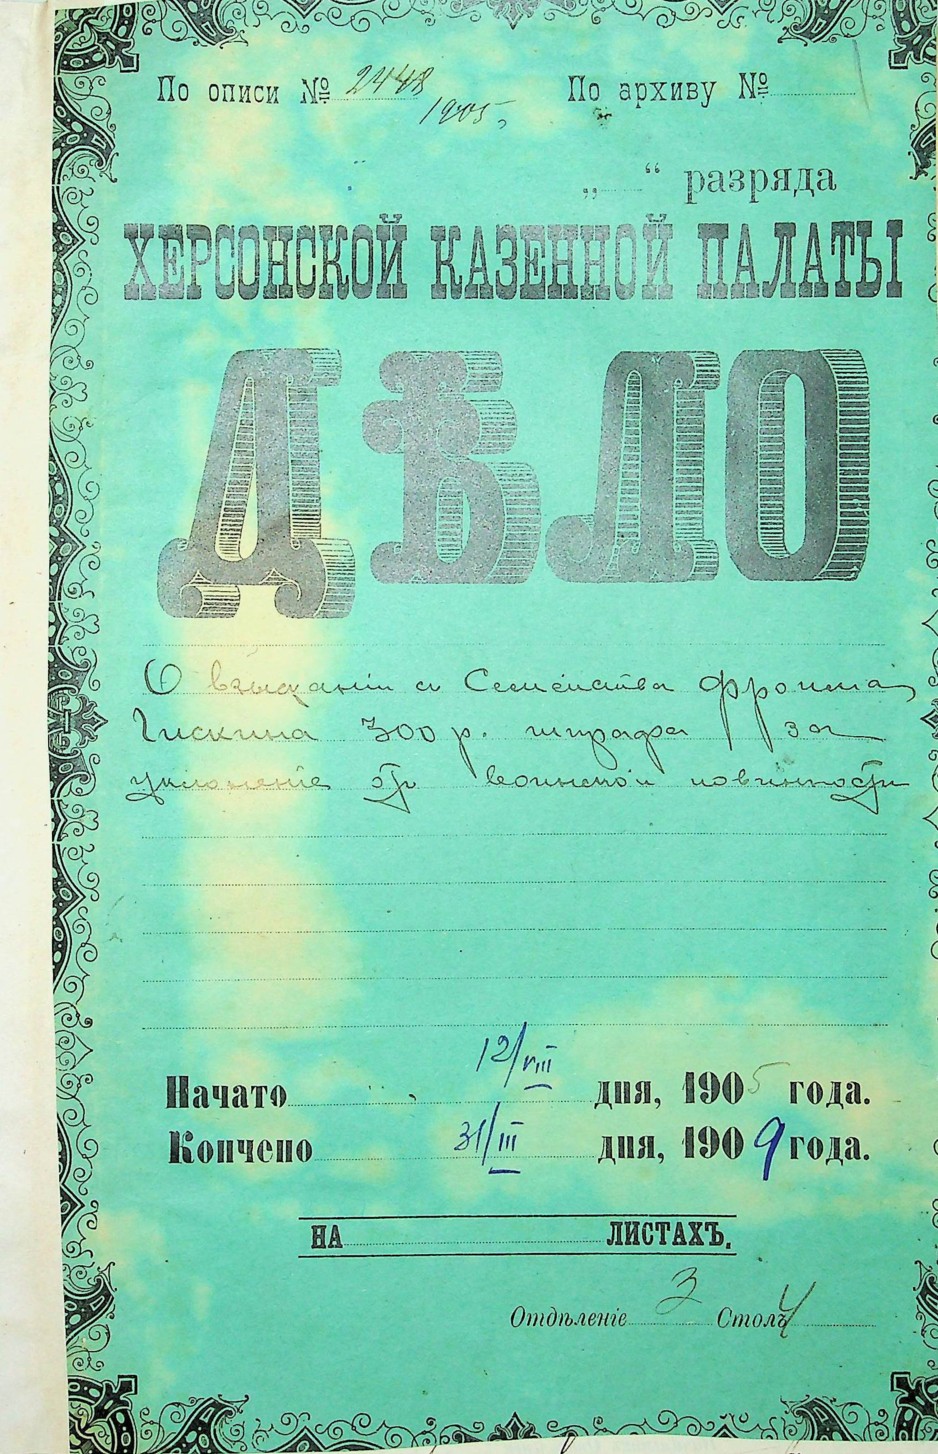 По описи № 2448 По архиву №
1905
„ “ разряда
ХЕРСОНСКОЙ КАЗЕННОЙ ПАЛАТЫ
ДѢЛО
О взысканіи съ Семейства Фроима
Гискина 300 р. штрафа за
уклоненіе отъ воинской повинности
Начато 12/VIII дня, 1905 года.
Кончено 31/III дня, 1909 года.
НА ЛИСТАХЪ.
Отдѣленіе 3 Столъ 4